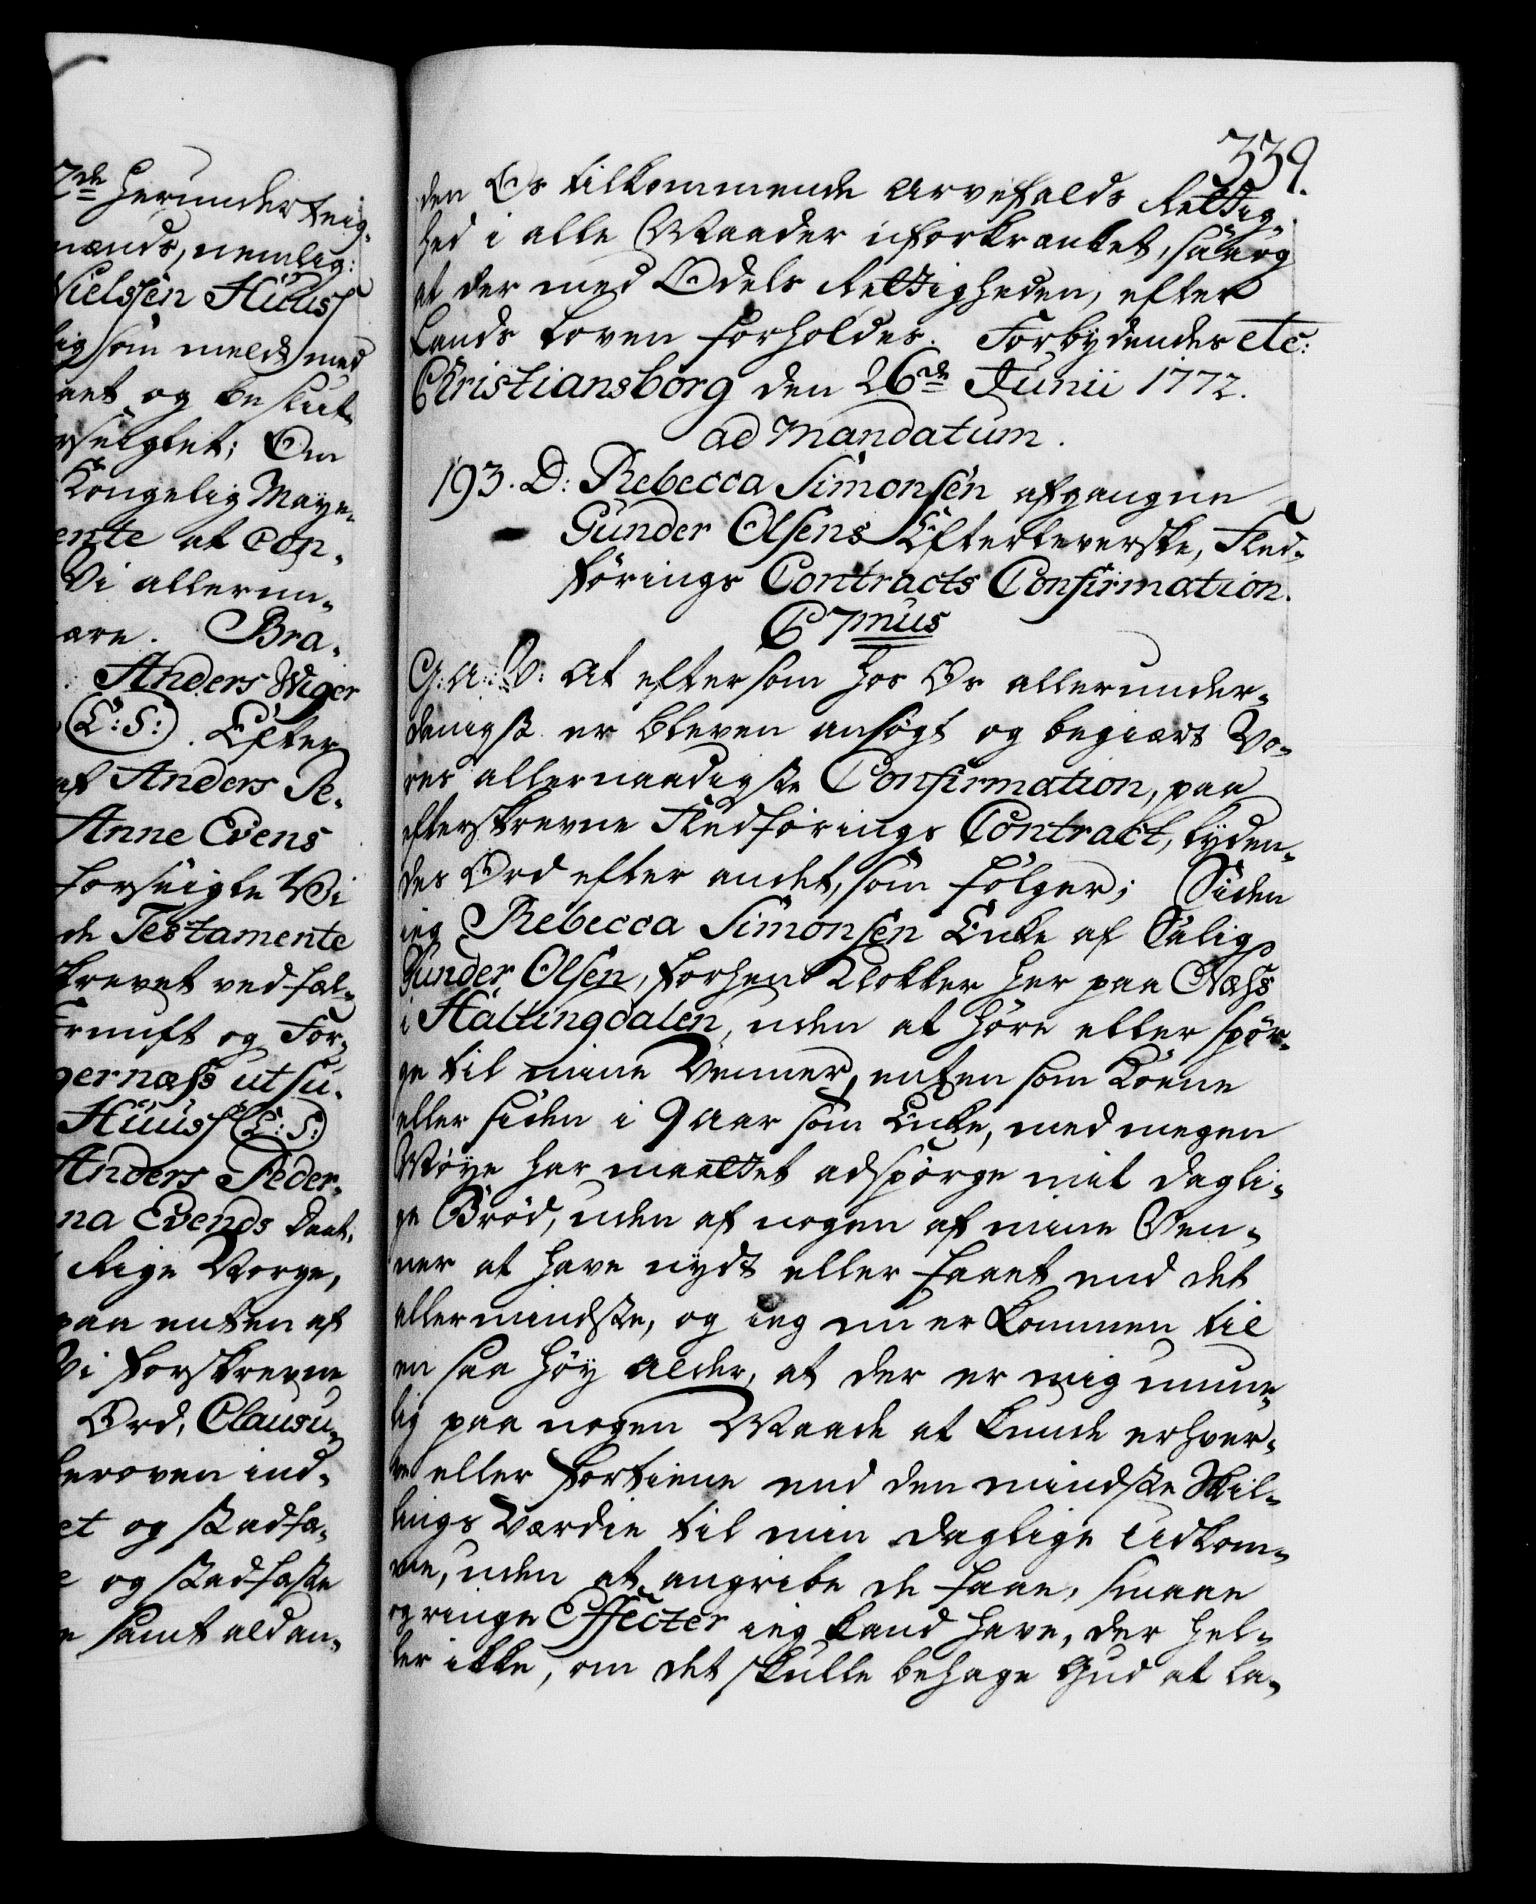 2de herunderteig-
mænds, nemlig:
Nielssen Huuss
lig som meldt med
aet og beslut-
rseiglet; Om
Kongelig Maye-
ente at Con-
Vi allerun-
are. Bra-
Anders Wiger
(L:S:). Efter
af Anders Pe-
Anne Evens
forseigle Wi
de Testamente
krevet ved fæl-
rnuft og For-
gernæss ut su-
Huuss (L:S:)
Anders Peder-
na Evends Daat-
Rige Norge,
paa enten af
Vi forskrevne
Ord, Clausu-
heroven ind-
et og stadfæ-
og stadfæste
samt ald an-
339.
den Os tilkommende Arvefalds Rettig-
hed i alle Maader uforkrænket, saa og
at der med Odels Rettigheden, efter
Lands Loven forholdes. Forbydendes etc:
Christiansborg den 26de Junii 1772.
ad Mandatum.
193. D: Rebecca Simonsen afgangne
Gunder Olsens Efterleverske, Fled-
førings Contracts Confirmation.
C 7mus
G: A: V: At eftersom hos Os allerunder-
danigst er bleven ansøgt og begiært Vo-
res allernaadigste Confirmation, paa
efterskrevne Fledførings Contract, lyden-
des Ord efter andet, som følger; Siden
ieg Rebecca Simonsen Enke af Salig
Gunder Olsen, forhen Klokker her paa Næss
i Hallingdalen, uden at høre eller spør-
ge til mine Venner, enten som Kone
eller siden i 9 Aar som Enke, med megen
Møye har maattet adspørge mit dagli-
ge Brød, uden af nogen af mine Ven-
ner at have nydt eller faaet end det
allermindste, og ieg nu er kommen til
en saa høy Alder, at der er mig umue-
lig paa nogen Maade at kunde erhver-
ve eller fortiene end den mindste Skil-
lings Værdie til min daglige Udkom-
me, uden at angribe de faae, smaae
og ringe Effecter ieg kand have, der hel-
ler ikke, om det skulle behage Gud at la-